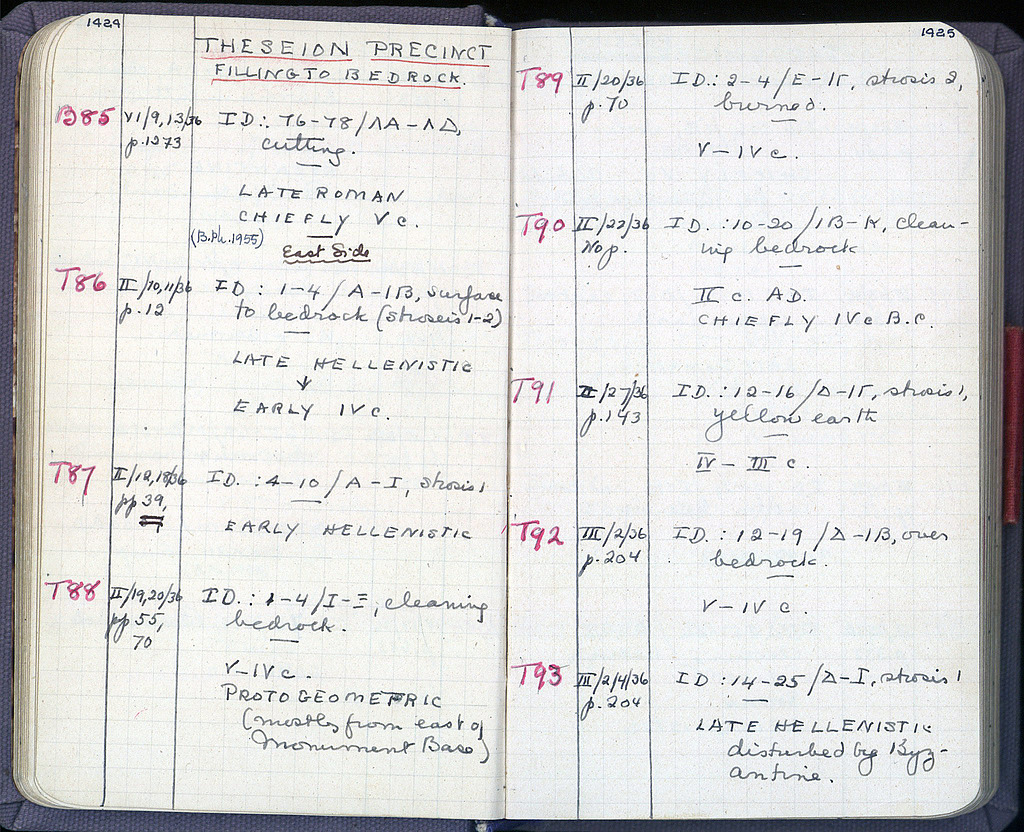 1424
THESEION PRECINCT
FILLING TO BEDROCK.
B85 VI/9,13/36 ID.: 76-78/ΛA-ΛΔ,
p.1273 cutting.
LATE ROMAN
CHIEFLY V c.
(B.Ph. 1955)
East Side
T86 II/10,11/36 ID: 1-4/A-IB, surface
p.12 to bedrock (stroseis 1-2)
LATE HELLENISTIC
↓
EARLY IV c.
T87 II/12,18/36 ID.: 4-10/A-I, strosis 1
pp 39,
EARLY HELLENISTIC
T88 II/19,20/36 ID.: 1-4/I-Ξ, cleaning
pp 55, bedrock.
70
V-IV c.
PROTOGEOMETRIC
(mostly from east of
Monument Base)
1425
T89 II/20/36 ID.: 2-4/E-IΓ, strosis 2,
p.70 burned.
V-IV c.
T90 II/22/36 ID.: 10-20/IB-K, clean-
No p. ing bedrock
II c. AD.
CHIEFLY IV c B.C.
T91 II/27/36 ID.: 12-16/Δ-IΓ, strosis 1,
p.143 yellow earth
IV-III c.
T92 III/2/36 ID.: 12-19/Δ-IB, over
p.204 bedrock.
V-IV c.
T93 III/2,4/36 ID: 14-25/Δ-I, strosis 1
p.204
LATE HELLENISTIC
disturbed by Byz-
antine.